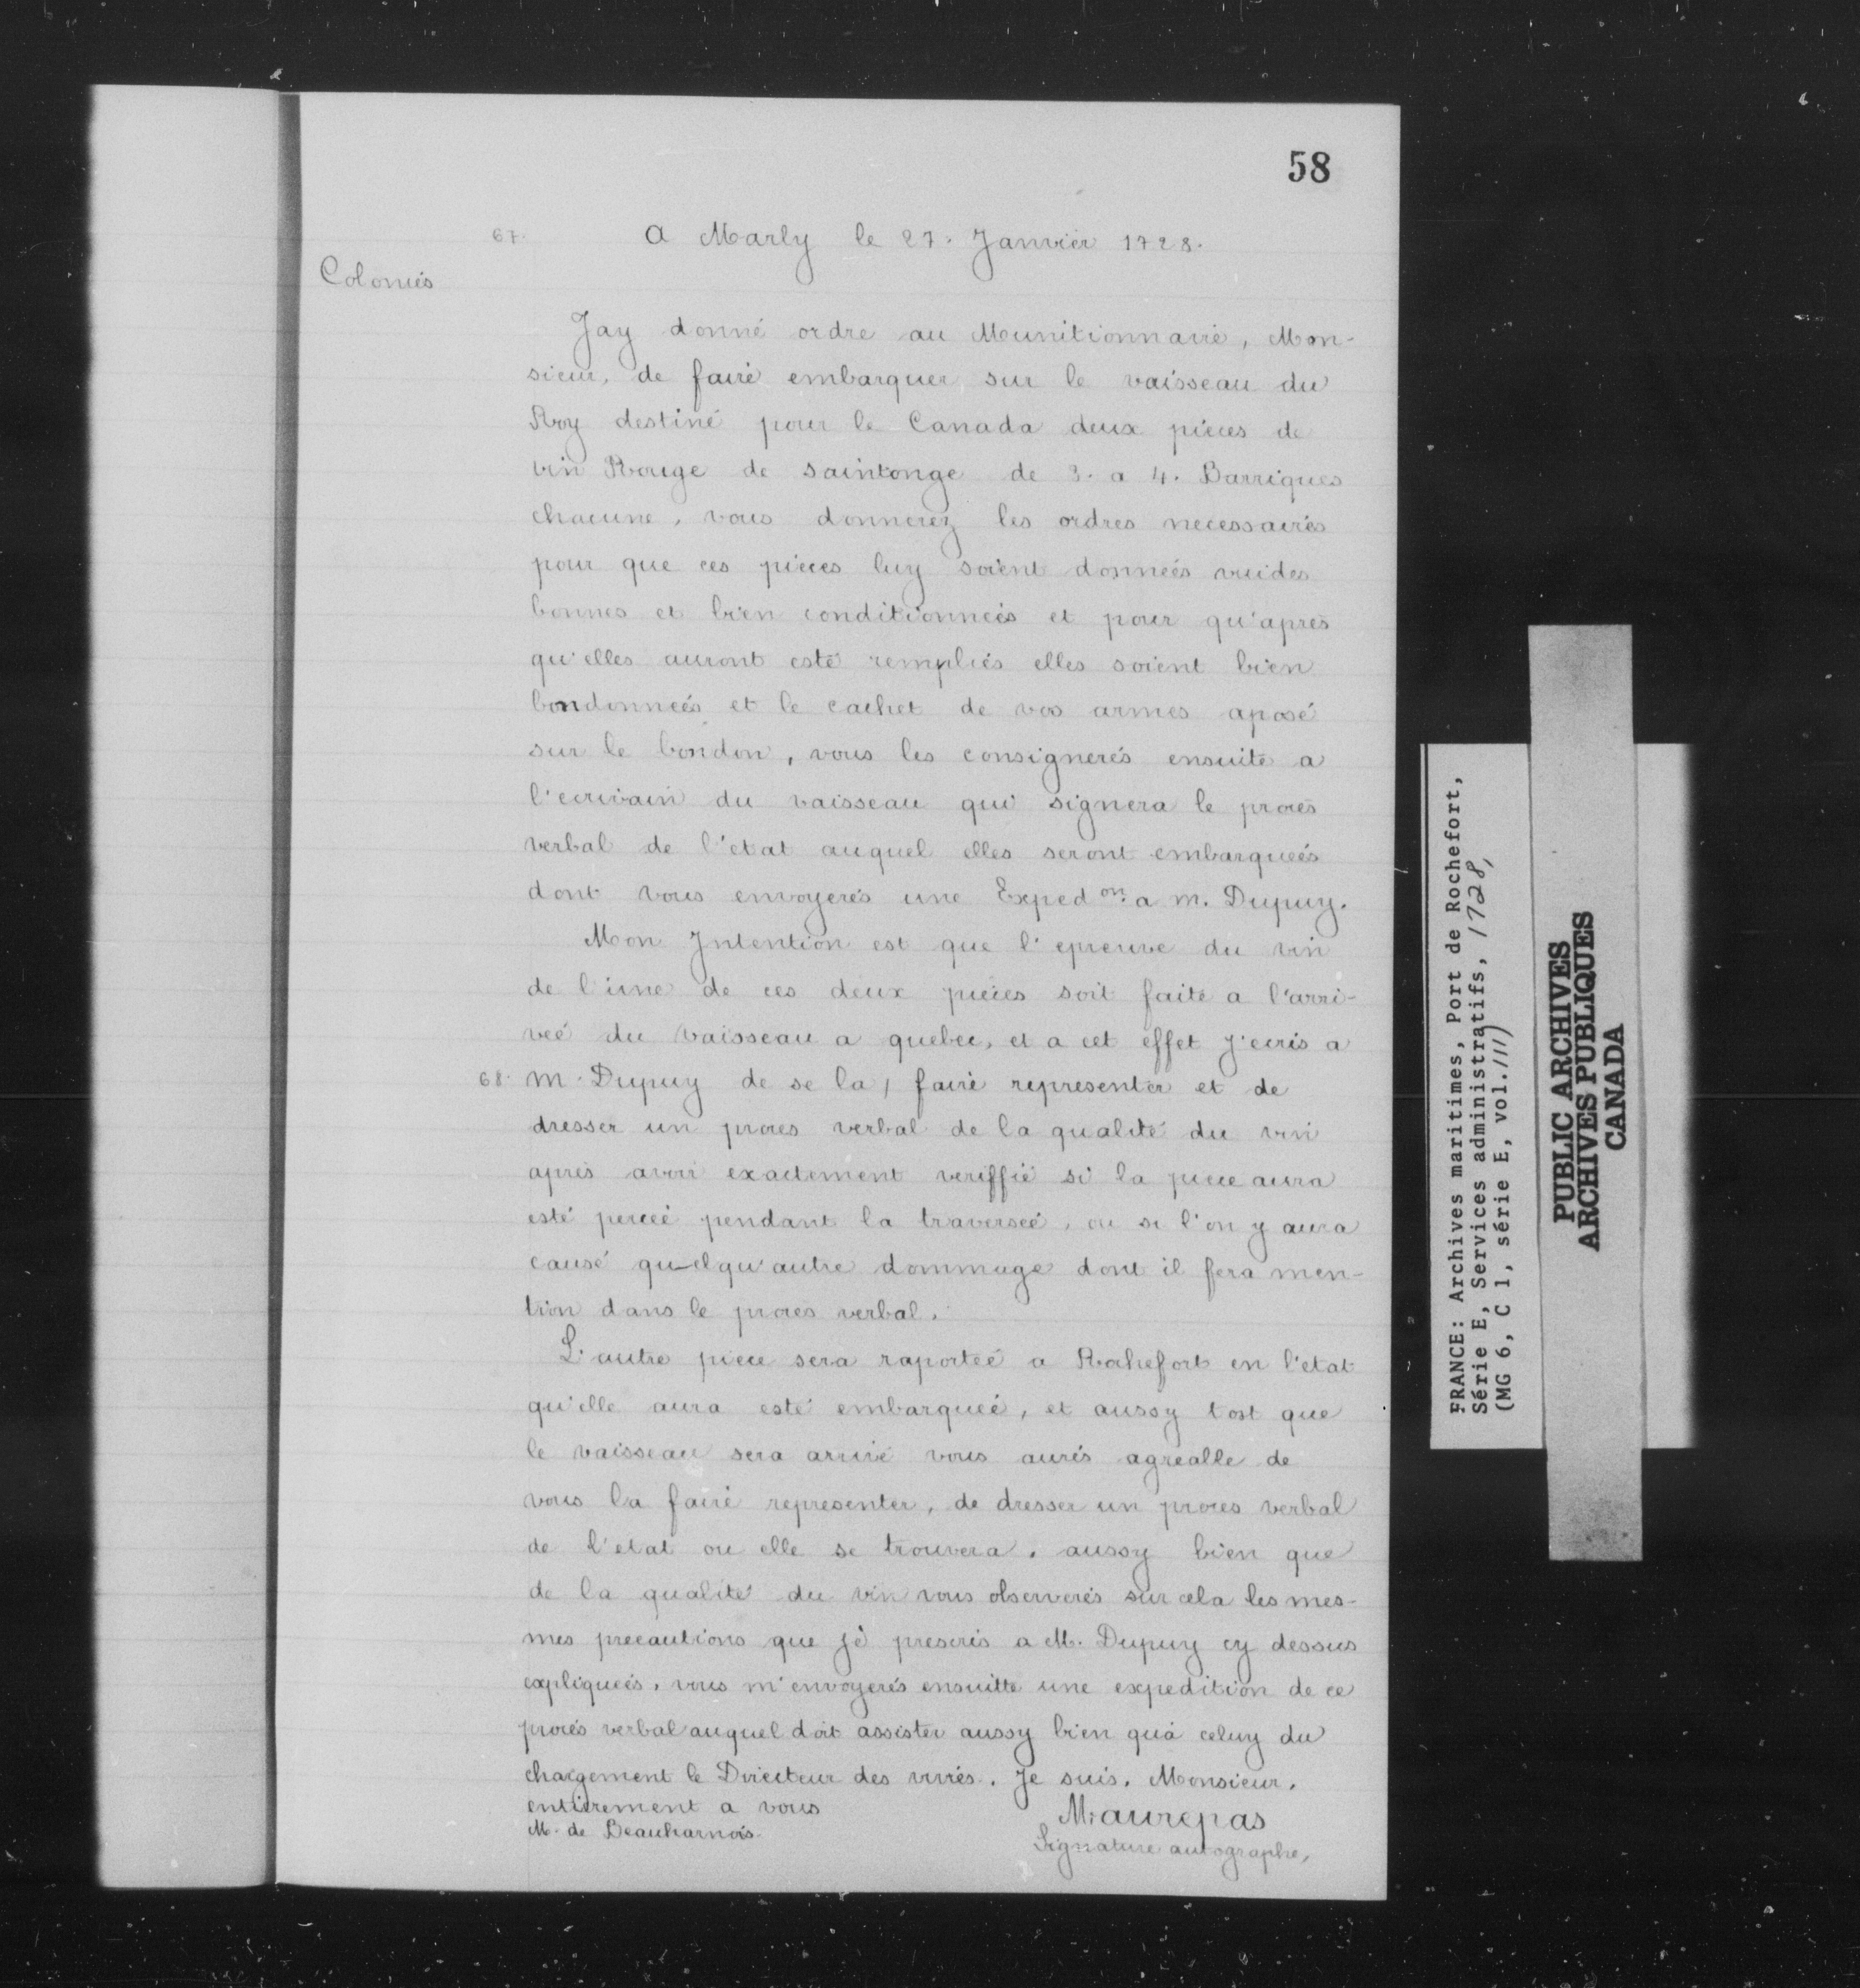 58
67. A Marly le 27. Janvier 1728.
Colonies
Jay donné ordre au Munitionnaire, Mon-
sieur, de faire embarquer sur le vaisseau du
Roy destiné pour le Canada deux pièces de
vin Rouge de saintonge de 3. a 4. Barriques
chacune, vous donnerez les ordres necessaires
pour que ces pieces luy soient données vuides
bonnes et bien conditionnées et pour qu'après
qu'elles auront esté remplies elles soient bien
bondonnées et le cachet de vos armes aposé
sur le bondon, vous les consignerés ensuite a
l'ecrivain du vaisseau qui signera le procés
verbal de l'etat auquel elles seront embarquées
dont vous envoyerés une Exped.on a m. Dupuy.
Mon Intention est que l'epreuve du vin
de l'une de ces deux pieces soit faite a l'arri-
vée du vaisseau a quebec, et a cet effet j'ecris a
68. m. Dupuy de se la / faire representer et de
dresser un proces verbal de la qualité du vin
après avoir exactement veriffié si la piece aura
esté percée pendant la traversée, ou si l'on y aura
causé quelqu'autre dommage dont il fera men-
tion dans le proces verbal.
L'autre piece sera raportée a Rochefort en l'etat
qu'elle aura esté embarquée, et aussy tost que
le vaisseau sera arrivé vous aurés agréable de
vous la faire representer, de dresser un proces verbal
de l'etat ou elle se trouvera, aussy bien que
de la qualité du vin vous observerés sur cela les mes-
mes precautions que je prescris a M. Dupuy cy dessus
expliquées, vous m'envoyerés ensuitte une expedition de ce
procés verbal auquel doit assister aussy bien qu'à celuy du
chargement le Directeur des vivres. Je suis, Monsieur,
entierement a vous
Maurepas
M. de Beauharnois.
Signature autographe,
FRANCE: Archives maritimes, Port de Rochefort,
Série E, Services administratifs, 1728,
(MG 6, C 1, série E, vol. 111)
PUBLIC ARCHIVES
ARCHIVES PUBLIQUES
CANADA